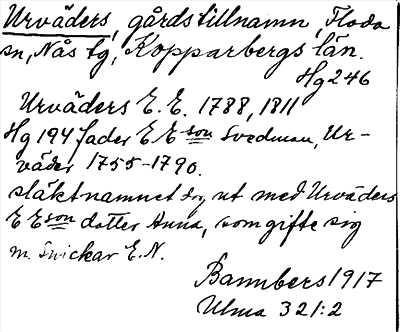 Urväders, gårdstillnamn, Floda
sn, Nås tg, Kopparbergs län.
Hg 246
Urväders E. E. 1788, 1811
Hg 194 fader E E son Svedman, Ur-
väder 1755-1790.
släktnamnet dog ut med Urväders
E E son dotter Anna, som gifte sig
m. Snickar E. N.
Bannbers 1917
Ulma 321:2